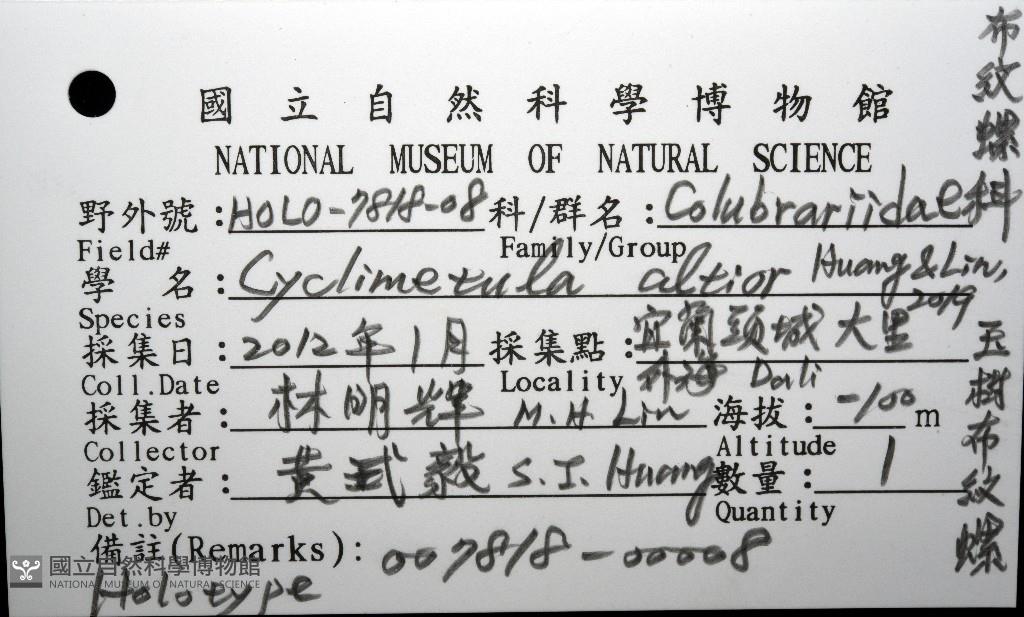 國立自然科學博物館
NATIONAL MUSEUM OF NATURAL SCIENCE
野外號:HOLO-7818-08 科/群名:Colubrariidae 布紋螺科
Field# Family/Group
學 名:Cyclimetula altior Huang & Lin, 2019
Species
採集日:2012年1月 採集點:宜蘭頭城大里
Coll.Date Locality 外海 Dali
採集者:林明輝 M.H. Lin 海拔:-100 m
Collector Altitude
鑑定者:黃式毅 S.I. Huang 數量:1
Det.by Quantity
備註(Remarks):007818-00008
Holotype
玉樹布紋螺
國立自然科學博物館
NATIONAL MUSEUM OF NATURAL SCIENCE